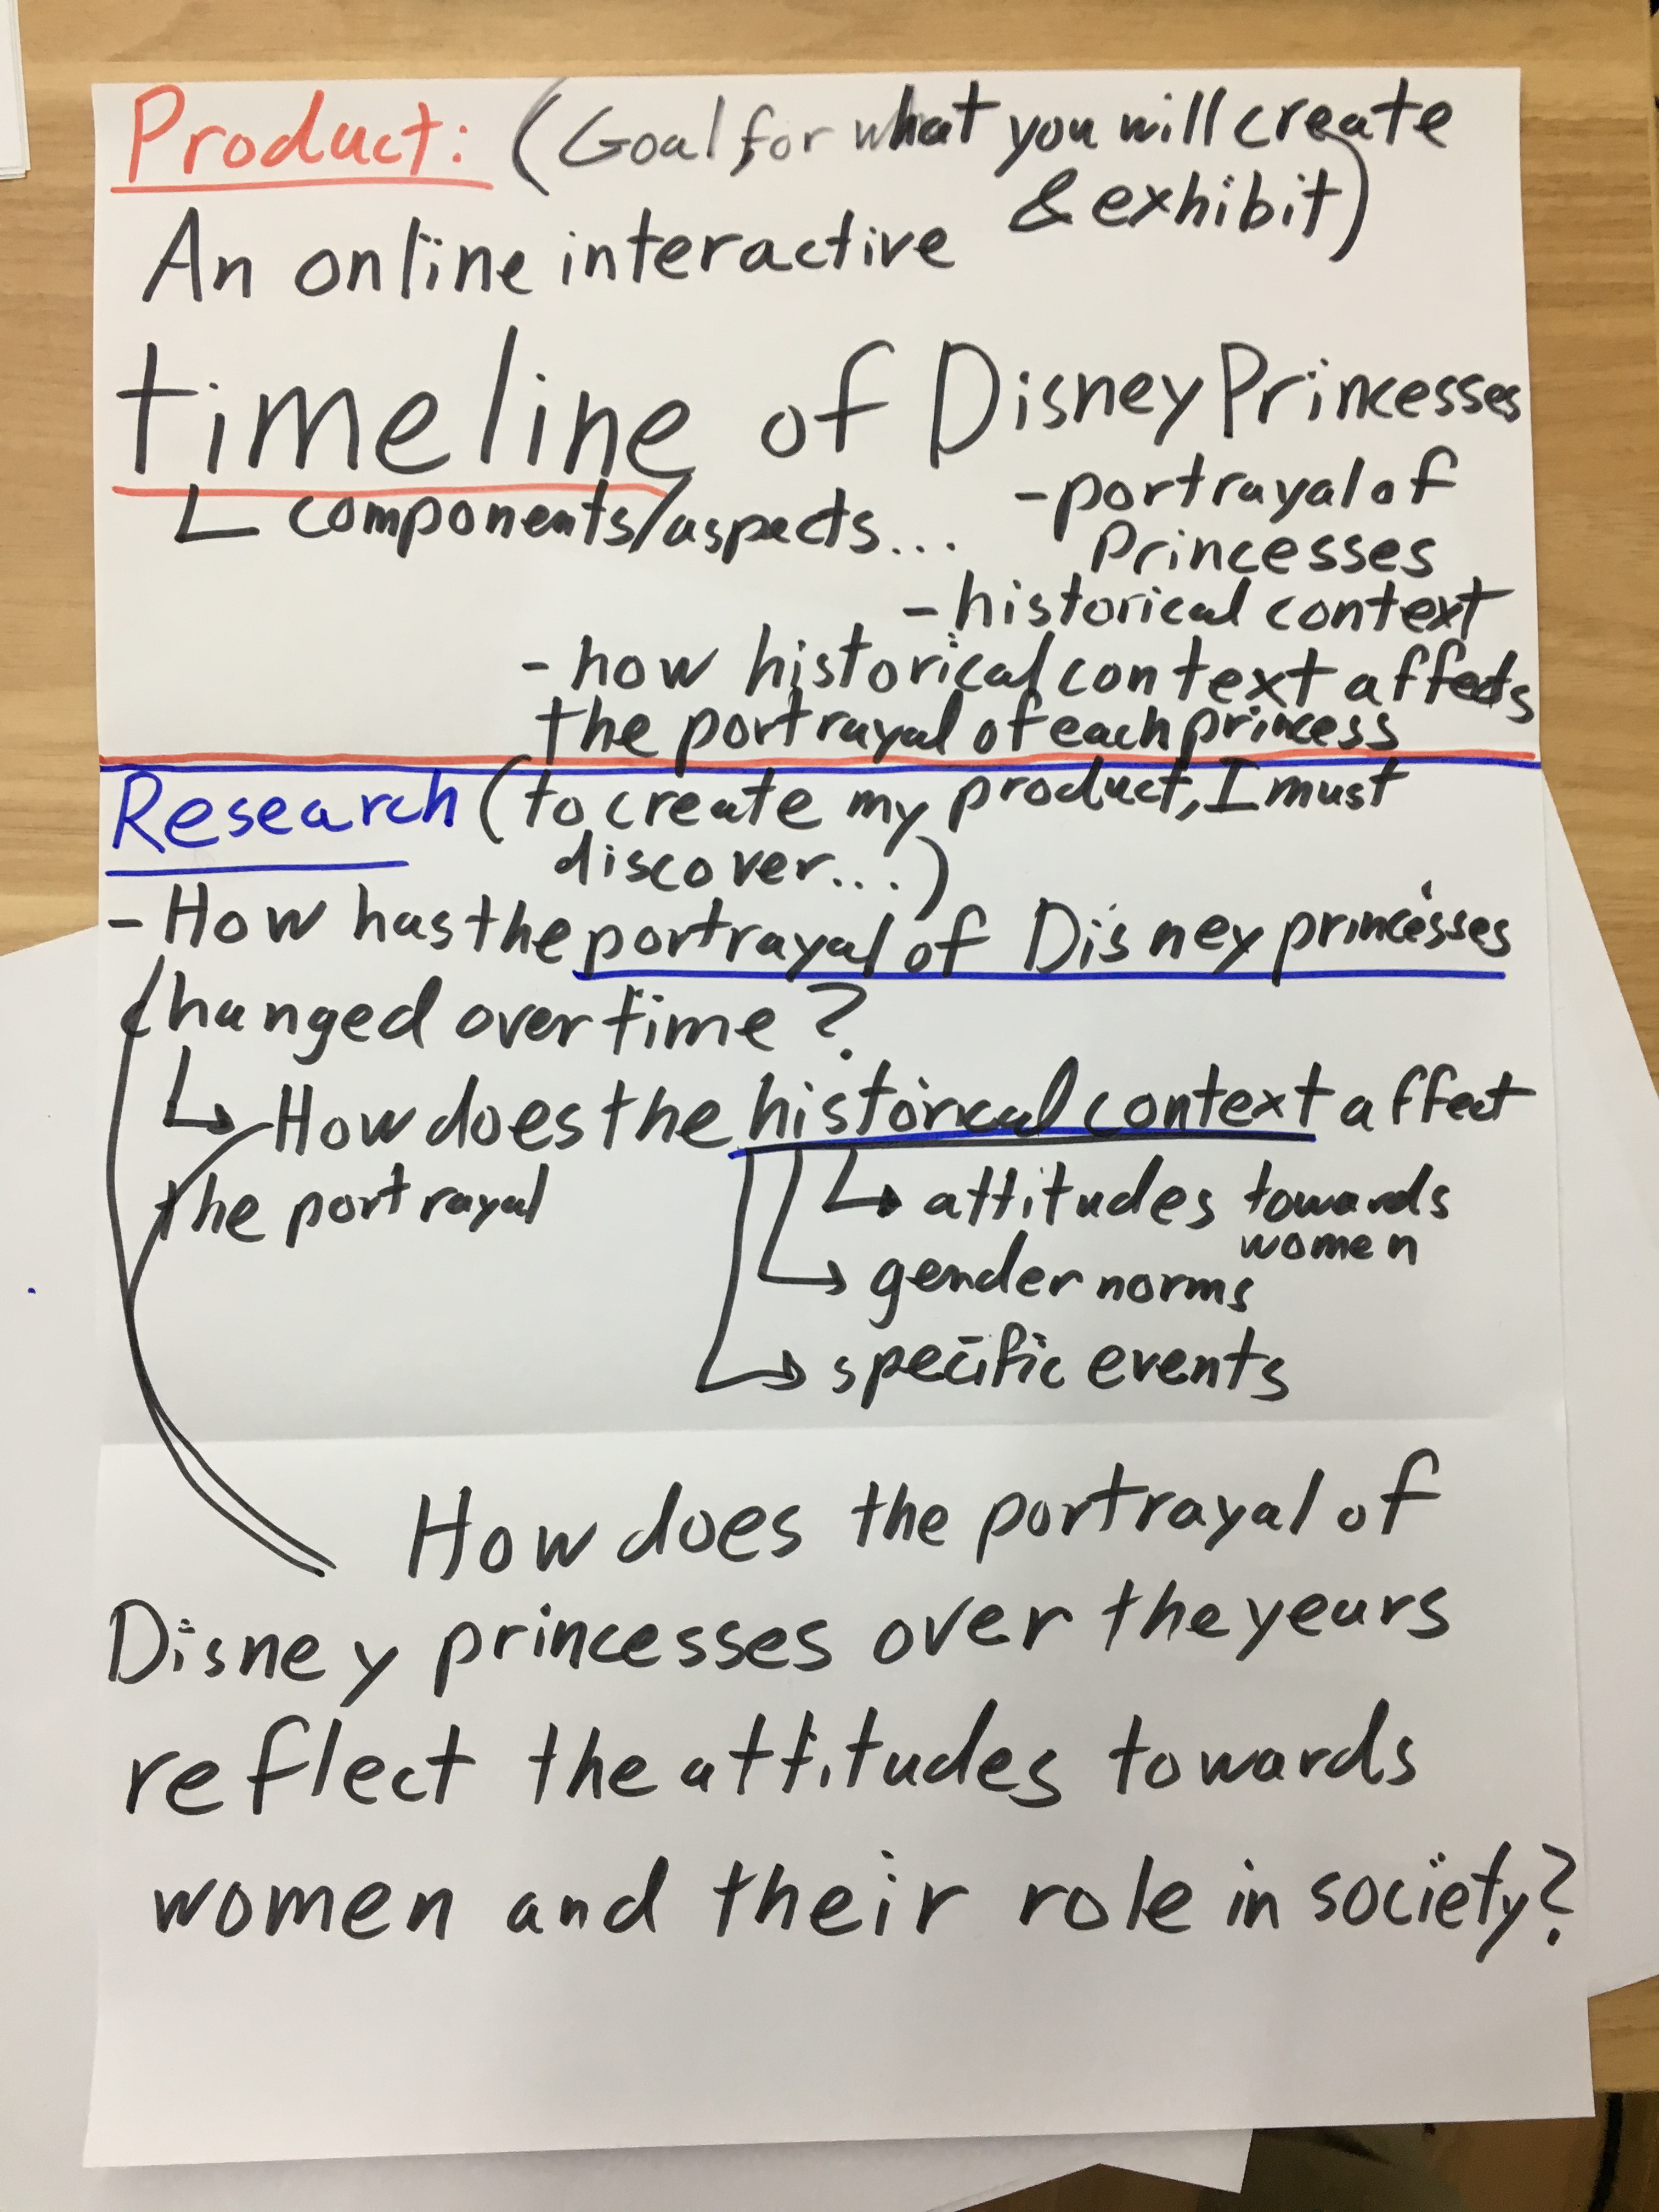 Product: (Goal for what you will create
& exhibit)
An online interactive
timeline of Disney Princesses
components/aspects...
- portrayal of
Princesses
- historical context
- how historical context affects
the portrayal of each princess
Research (to create my product, I must
discover...)
- How has the portrayal of Disney princesses
changed over time?
How does the historical context affect
the portrayal
attitudes towards
women
gender norms
specific events
How does the portrayal of
Disney princesses over the years
reflect the attitudes towards
women and their role in society?